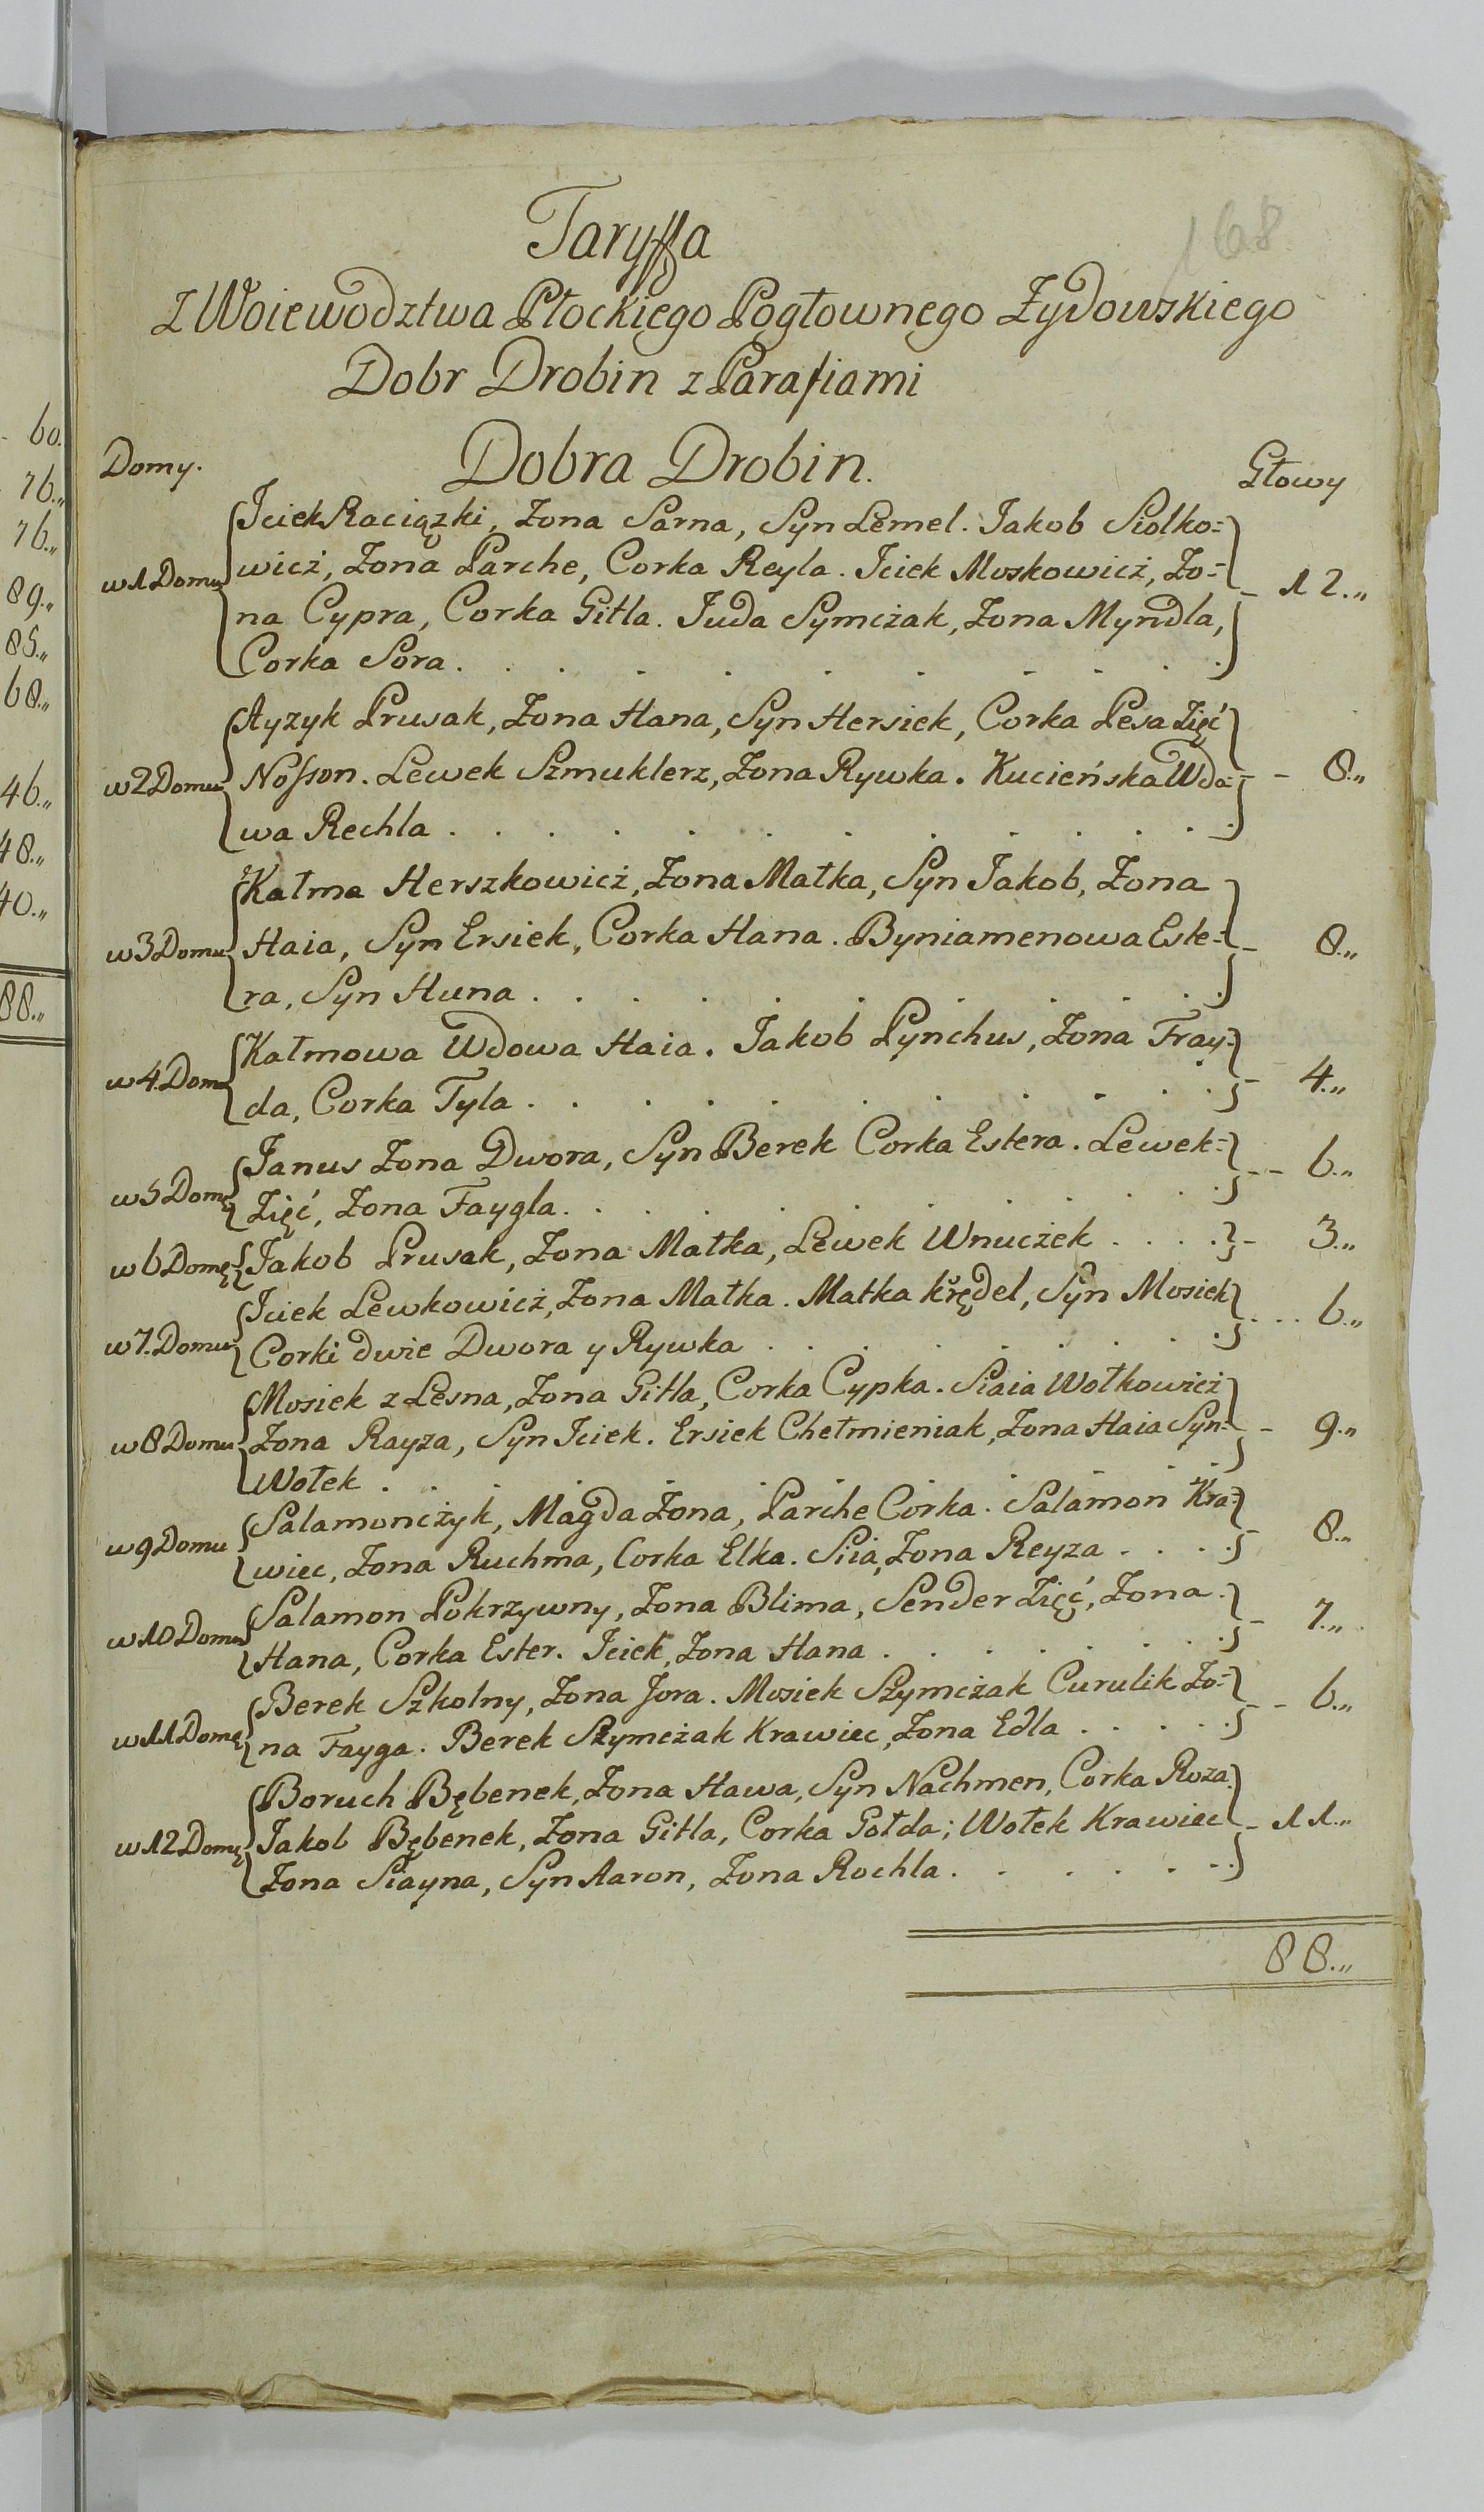 168
Taryffa
Z Woiewodztwa Płockiego Pogłownego Żydowskiego
Dobr Drobin z Parafiami
Domy. Dobra Drobin. Głowy
Iciek Raciązki, Żona Sarna, Syn Lemel. Jakob Siolko=
w 1 Domu wicż, Żona Parche, Corka Reyla. Iciek Moskowicż, Żo= 12.,,
na Cypra, Corka Gitla. Juda Symcżak, Żona Myndla,
Corka Sora.
Ayzyk Prusak, Żona Hana, Syn Hersiek, Corka Pesa Zięć
w 2 Domu Nosson. Lewek Szmuklerz, Żona Rywka. Kucieńska Wdo= 8.,,
wa Rechla
Kałma Herszkowicż, Żona Małka, Syn Jakob, Żona
w 3 Domu Haia, Syn Ersiek, Corka Hana. Byniamenowa Este= 8.,,
ra, Syn Huna
Kałmowa Wdowa Haia. Jakob Pynchus, Żona Fray=
w 4. Domu da, Corka Tyla 4.,,
Janus Żona Dwora, Syn Berek Corka Estera. Lewek=
w 5 Domu Zięć, Żona Faygla. 6.,,
w 6 Domu Jakob Prusak, Żona Małka, Lewek Wnucżek 3.,,
Iciek Lewkowicż, Żona Małka. Matka Kręndel, Syn Mosiek
w 7. Domu Corki dwie Dwora y Rywka 6.,,
Mosiek z Lesna, Żona Gitla, Corka Cypka. Siaia Wołkowicż
w 8 Domu Żona Rayza, Syn Iciek. Ersiek Chełmieniak, Żona Haia Syn= 9.,,
Wołek
w 9 Domu Salamoncżyk, Magda Żona, Parche Corka. Salamon Kra=
wiec, Żona Ruchma, Corka Elka. Siia, Żona Reyza 8.,,
w 10 Domu Salamon Pokrzywny, Żona Blima, Sender Zięć, Żona
Hana, Corka Ester. Iciek, Żona Hana 7.,,
Berek Szkolny, Żona Jora. Mosiek Szymcżak Curulik Żo=
w 11 Domu na Fayga. Berek Szymcżak Krawiec, Żona Edla 6.,,
Boruch Bębenek, Żona Hawa, Syn Nachmen, Corka Roza.
w 12 Domu Jakob Bębenek, Żona Gitla, Corka Gołda; Wołek Krawiec 11.,,
Żona Siayna, Syn Aaron, Żona Rochla.
88.,,
60.
76.,,
76.,,
89.,,
85.,,
68.,,
46.,,
48.,,
40.,,
88.,,